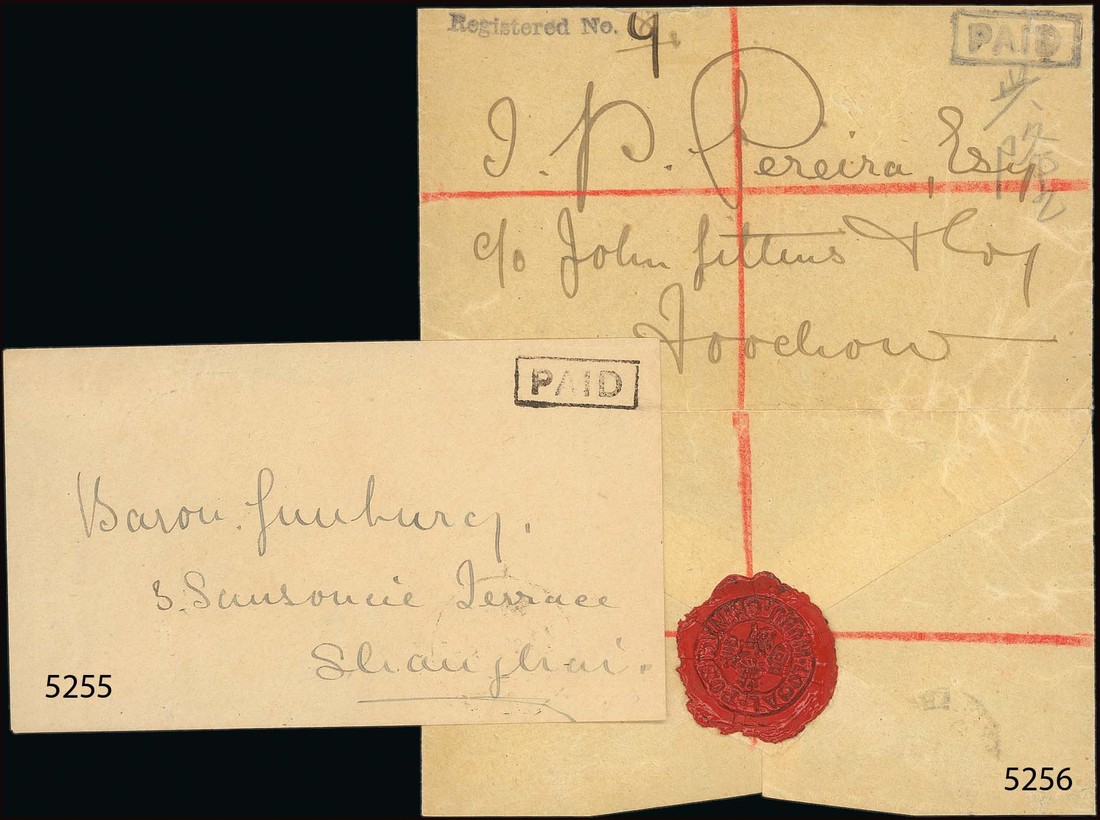 Registered No. 9
PAID
J. P. Pereira, Esq
c/o John Gittins & Coy
Foochow
PAID
Baron Gunburg.
3. Sansoucie Terrace
Shanghai.
5255
5256